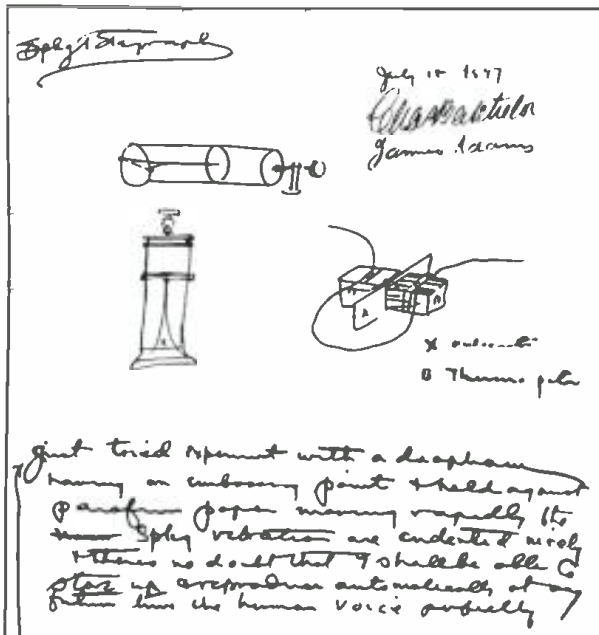 Spkg Telegraph
July 18 1877
Chas Batchelor
James Adams
X
B Thermo pile
Just tried experiment with a diaphram
having an embossing point & held against
parafin paper moving rapidly the
Spkg vibrations are indented nicely
& theres no doubt that I shall be able to
store up & reproduce automatically at any
future time the human voice perfectly